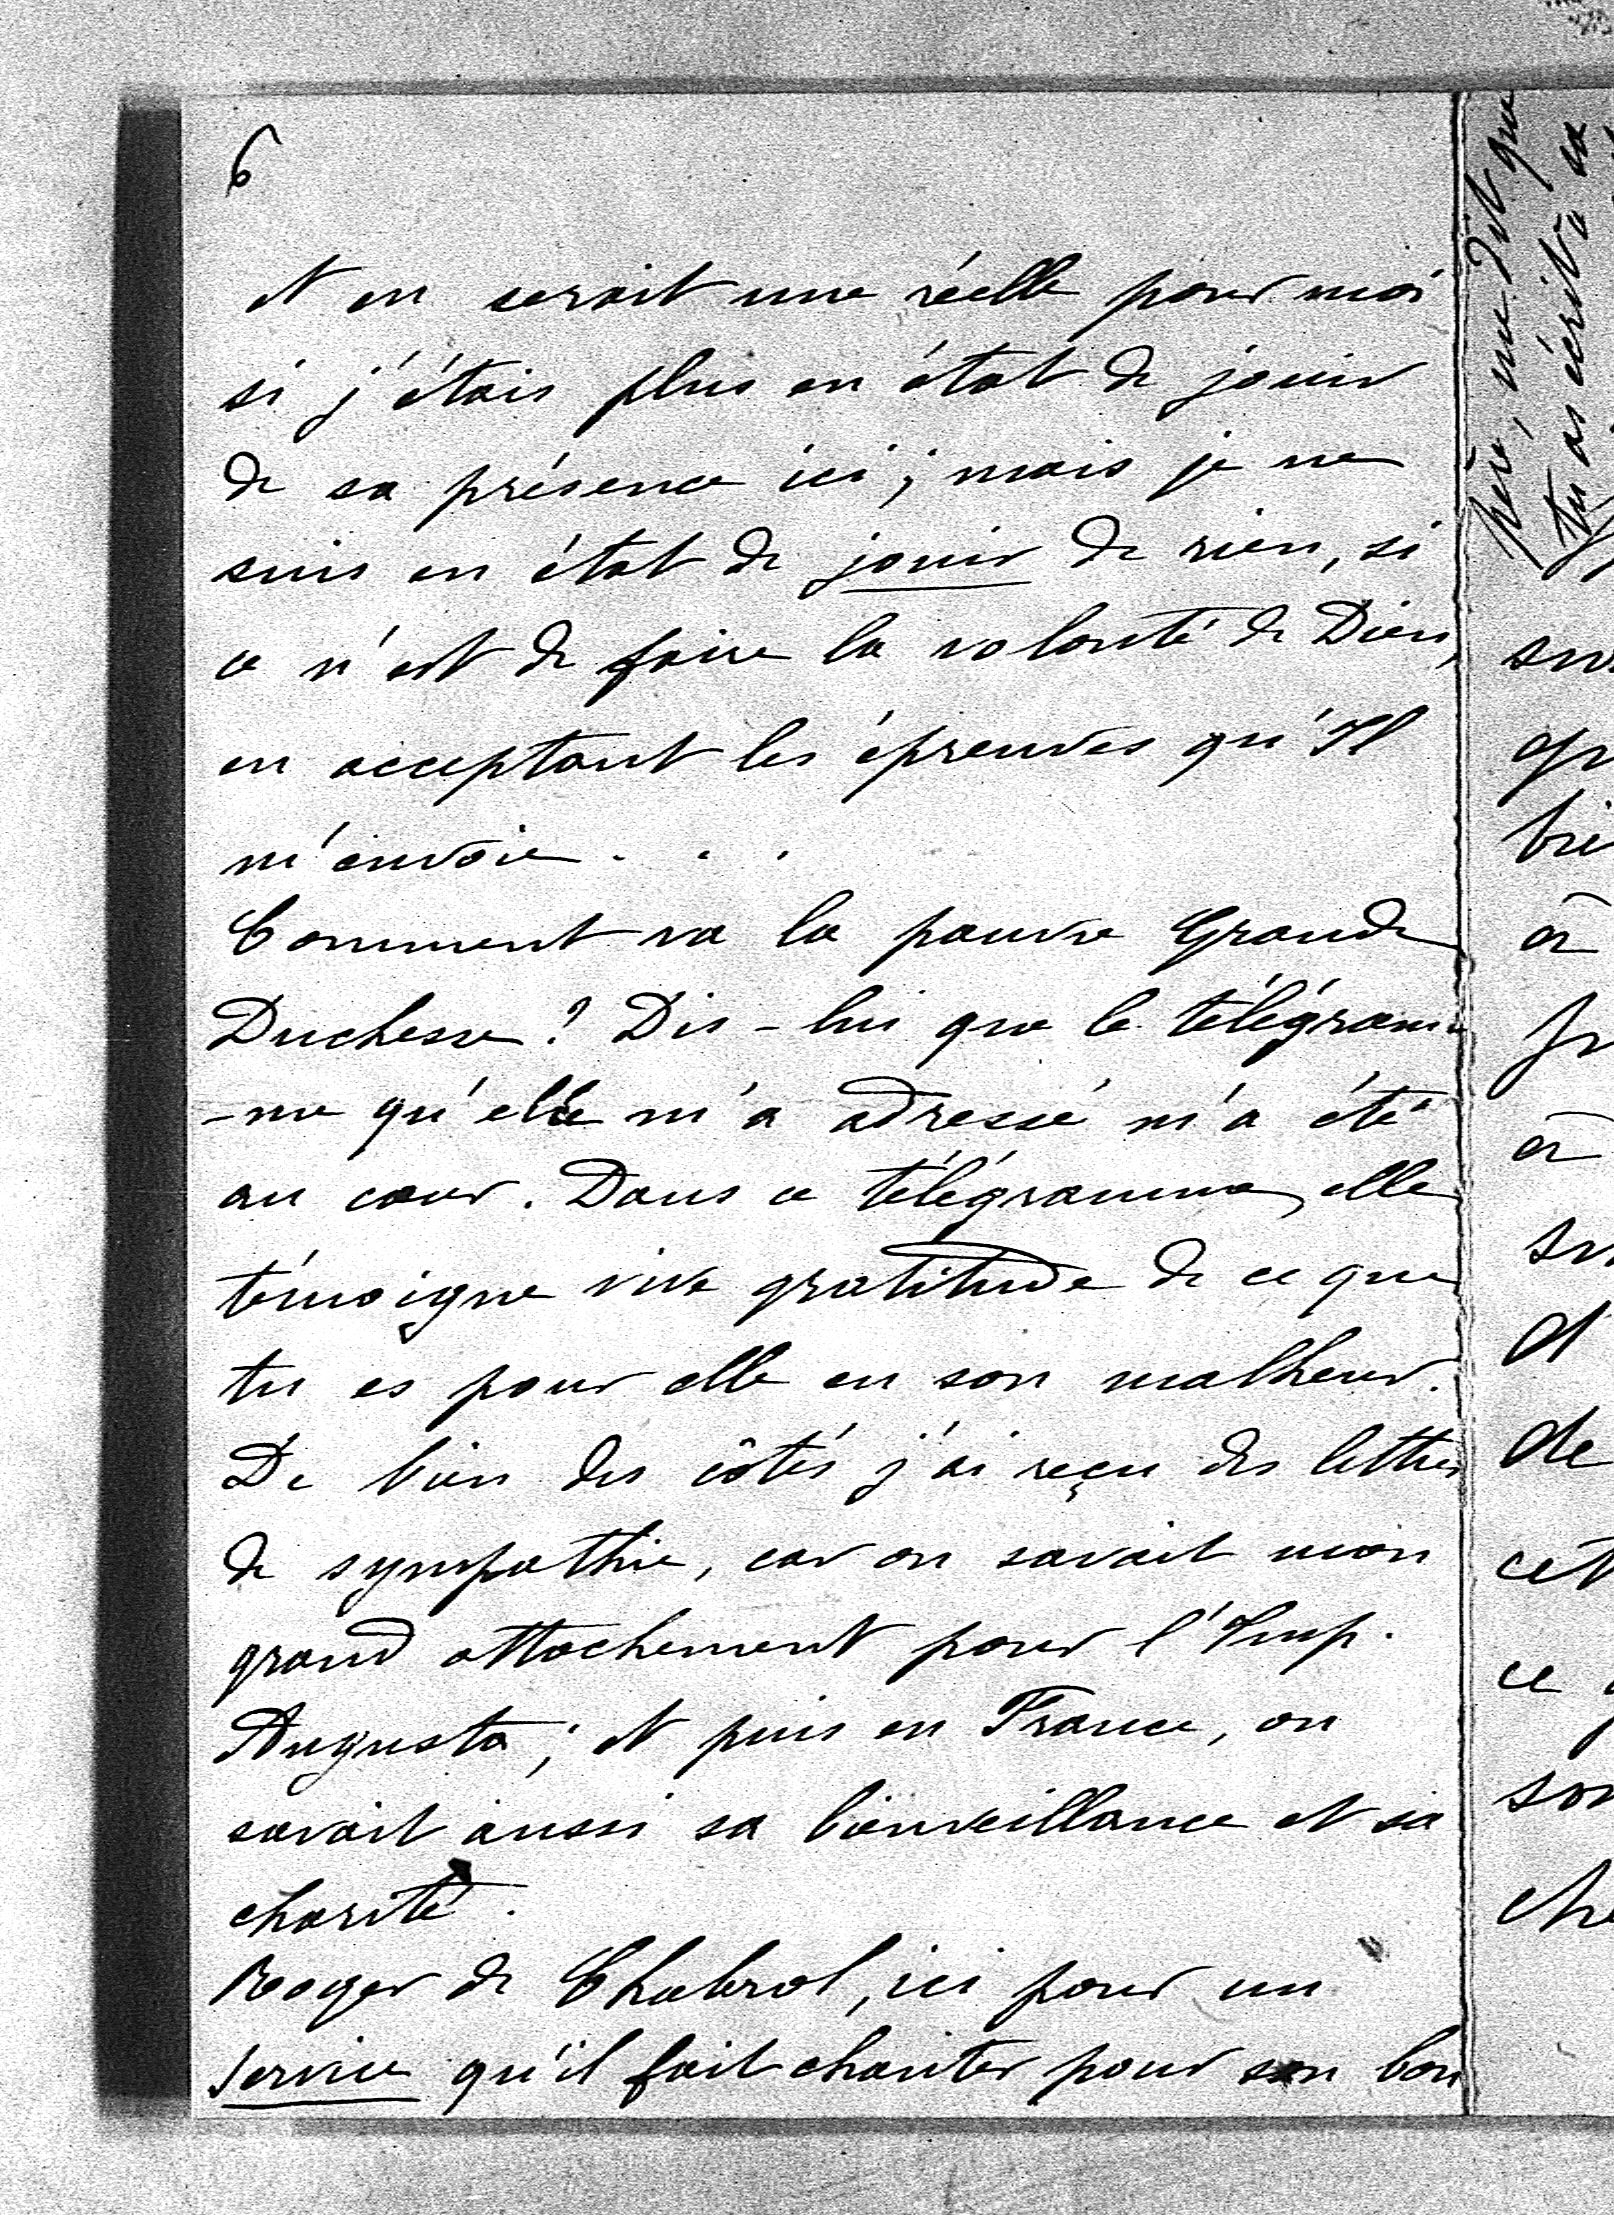 6
et en serait une réelle pour moi
si j'étais plus en état de jouir
de sa présence ici ; mais je ne
suis en état de jouir de rien, si
ce n'est de faire la volonté de Dieu,
en acceptant les épreuves qu'Il
m'envoie . . .
Comment va la pauvre Grande
Duchesse ? Dis-lui que le télégram
-me qu'elle m'a adressé m'a été
au cœur. Dans ce télégramme, elle
témoigne vive gratitude de ce que
tu es pour elle en son malheur.
De bien des côtés j'ai reçu des lettres
de sympathie, car on savait mon
grand attachement pour l'Imp.
Augusta ; et puis en France, on
savait aussi sa bienveillance et sa
charité.
Roger de Chabrol, ici pour un
service qu'il fait chanter pour son bon
père, me dit que
tu as écrit à sa
à
à
de
cet
ce